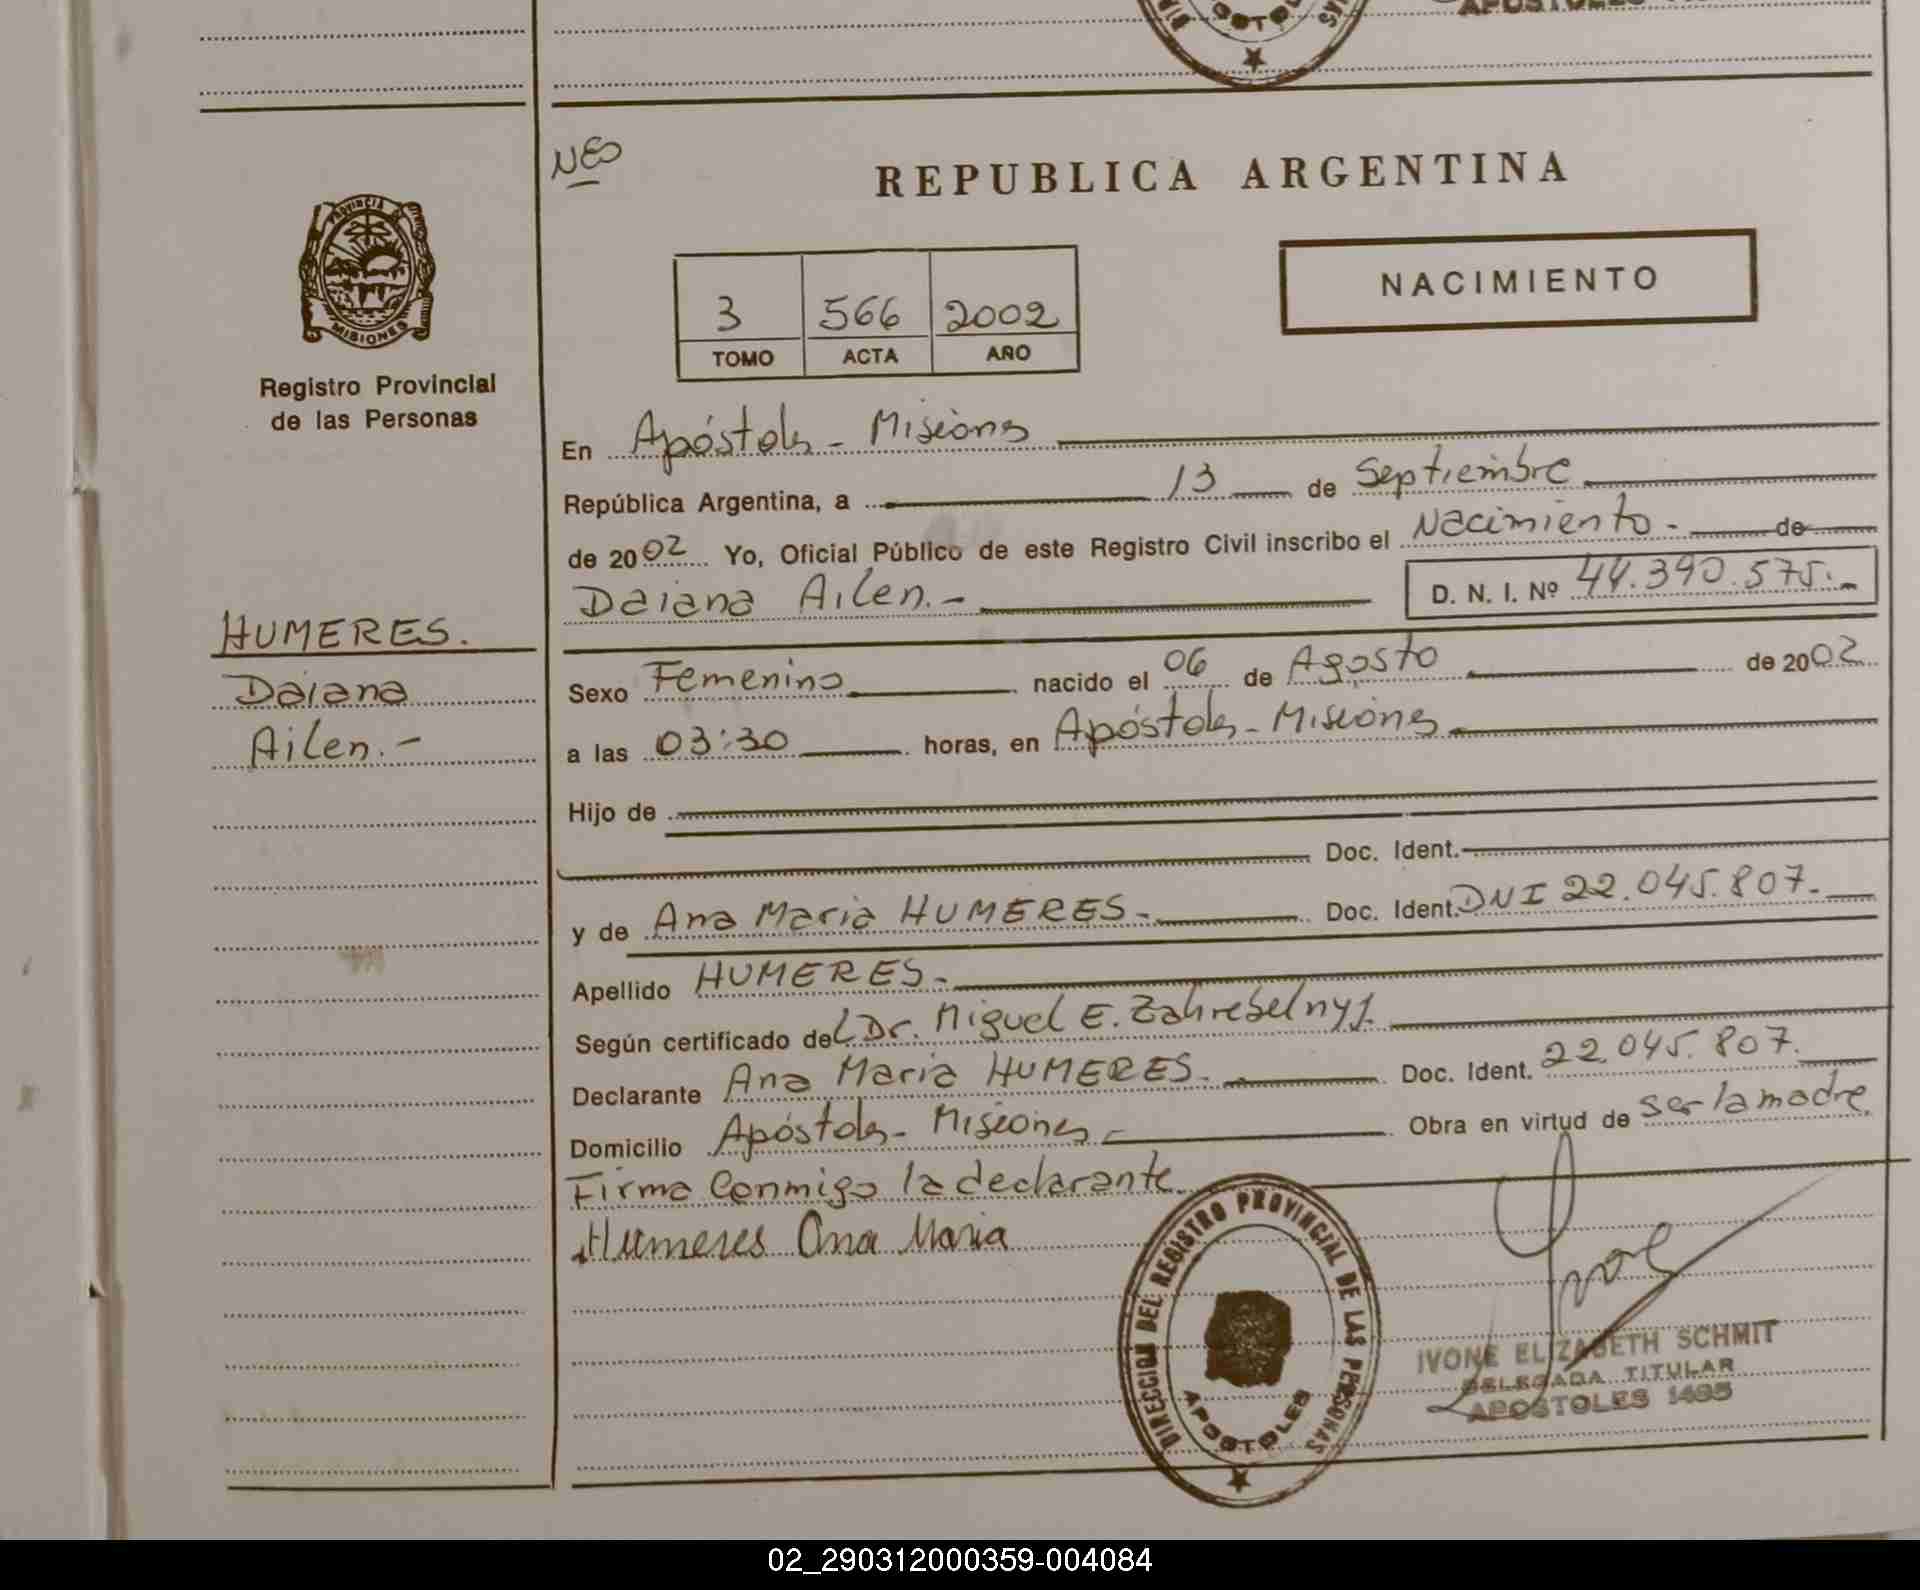 APOSTOLES
NES
REPUBLICA ARGENTINA
PROVINCIA DE MISIONES
NACIMIENTO
3 566 2002
TOMO ACTA AÑO
Registro Provincial
de las Personas
En Apóstoles - Misiones
República Argentina, a 13 de Septiembre
de 2002 Yo, Oficial Público de este Registro Civil inscribo el Nacimiento.- de
Daiana Ailen.- D. N. I. Nº 44.390.575.-
HUMERES.
Daiana
Ailen.-
Sexo Femenino nacido el 06 de Agosto de 2002
a las 03:30 horas, en Apóstoles - Misiones
Hijo de
Doc. Ident.
y de Ana Maria HUMERES.- Doc. Ident. DNI 22.045.807.-
Apellido HUMERES.-
Según certificado del Dr. Miguel E. Zahrebelnyj.
Declarante Ana Maria HUMERES.- Doc. Ident. 22.045.807.
Domicilio Apóstoles - Misiones - Obra en virtud de ser la madre
Firma conmigo la declarante.
Humeres Ana Maria
DIRECCION DEL REGISTRO PROVINCIAL DE LAS PERSONAS
APOSTOLES
IVONE ELIZABETH SCHMIT
DELEGADA TITULAR
APOSTOLES 1495
02_290312000359-004084